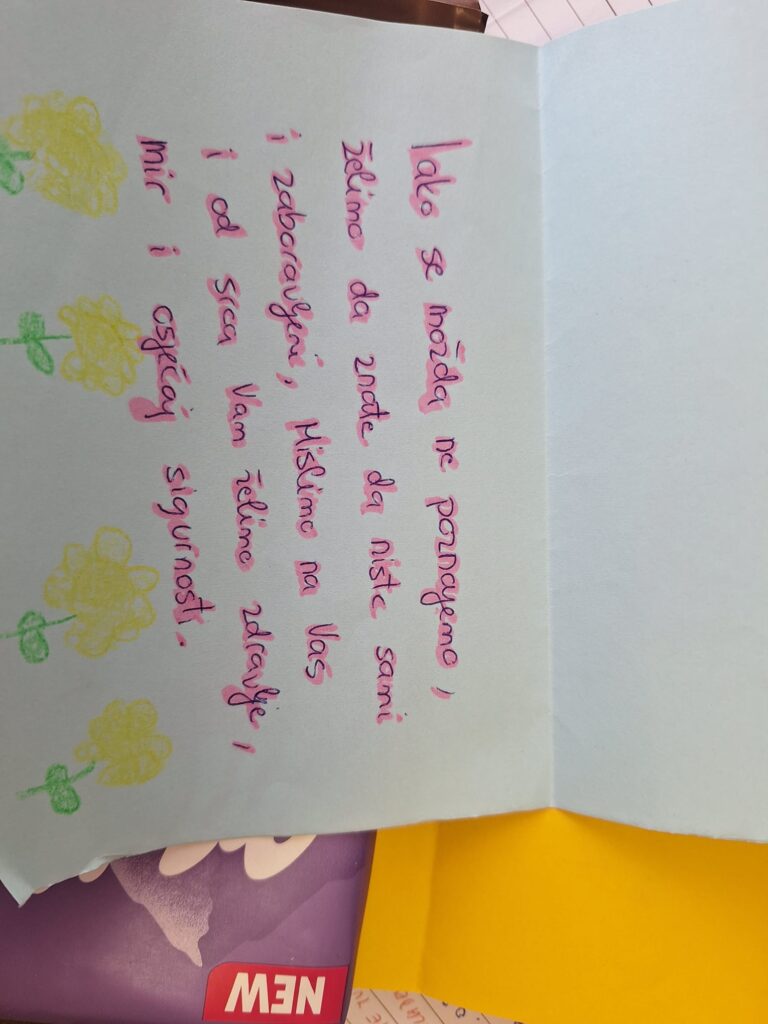 Iako se možda ne poznajemo,
želimo da znate da niste sami
i zaboravljeni, Mislimo na Vas
i od srca Vam želimo zdravlje,
mir i osjećaj sigurnosti.
NEW